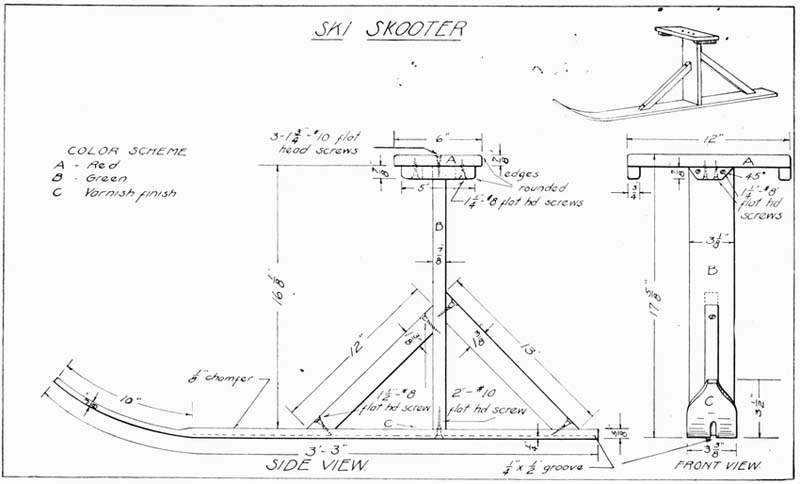 SKI SKOOTER
COLOR SCHEME
A - Red
B - Green
C Varnish finish
3-1 3/4"-#10 flat
head screws
6"
A
7/8
7/8
5"
edges
rounded
1 1/4"-#8
flat hd screws
B
7/8
16 1/8"
12"
13"
1 3/8
1 3/8
10"
1/8" chamfer
1 1/2"-#8
flat hd screw
2"-#10
flat hd screw
C
3'-3"
SIDE VIEW.
1/4" x 1/2" groove
12"
A
7/8
45°
1 1/4"-#8
flat hd
screws
3/4
3 1/8"
B
17 5/8"
B
C
3 1/2"
3 3/8
FRONT VIEW.